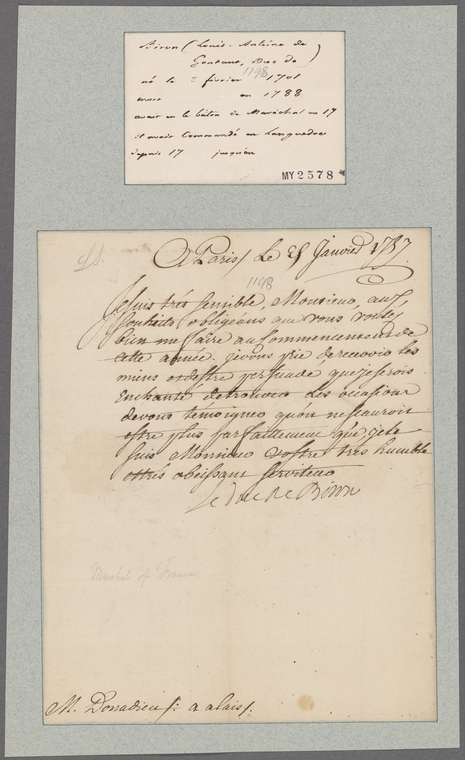 Biron (Louis-Antoine de
Gontaut, Duc de)
1198
né le 2 février 1701
mort en 1788
avait eu le bâton de Maréchal en 17
il avait Commandé en Languedoc
depuis 17 jusqu'en
MY2578
LS.
A Paris Le 25 Janvier 1757
1198
Je suis trés sensible, Monsieur, aux
souhaits obligeans que vous voulés
bien me faire au Commencement de
cette année. je vous prie de recevoir les
miens et destre persuadé que je serois
Enchanté de trouver des occasions
de vous temoigner qu'on ne scauroit
estre plus parfaitement que je le
suis Monsieur vostre trés humble
et trés obeissant serviteur
Le duc de Biron
Marshal of France
M. Donadieu /: a alais /.